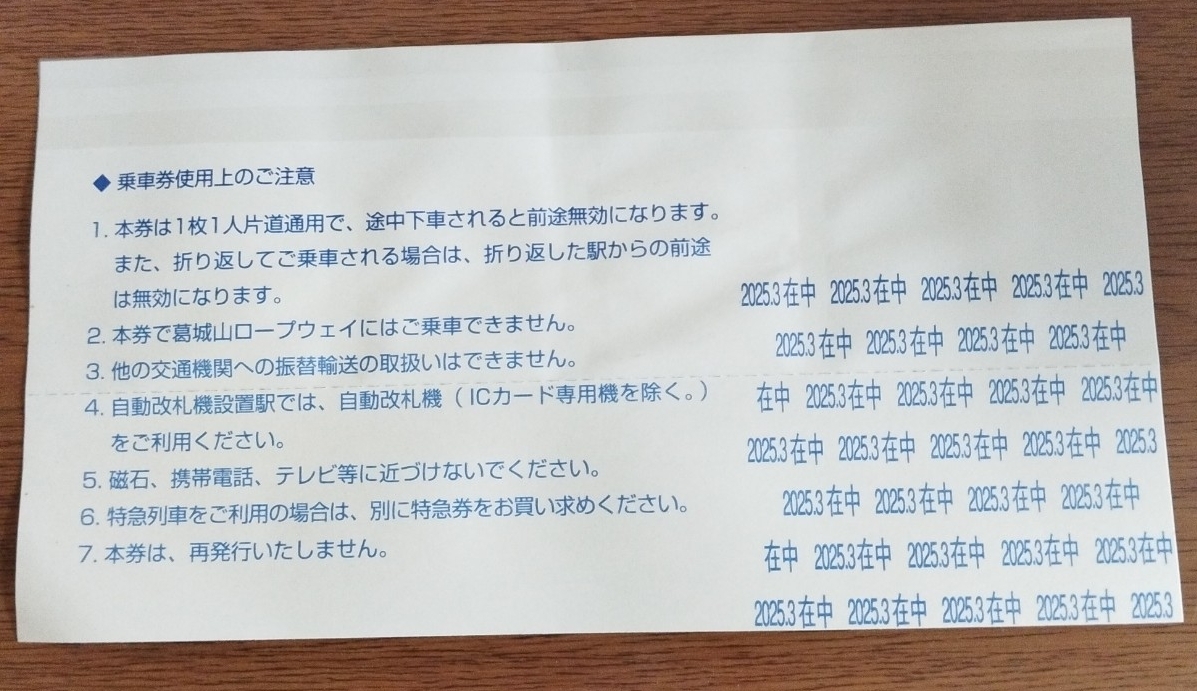 ◆ 乗車券使用上のご注意
1. 本券は1枚1人片道通用で、途中下車されると前途無効になります。
また、折り返してご乗車される場合は、折り返した駅からの前途
は無効になります。
2. 本券で葛城山ロープウェイにはご乗車できません。
3. 他の交通機関への振替輸送の取扱いはできません。
4. 自動改札機設置駅では、自動改札機（ICカード専用機を除く。）
をご利用ください。
5. 磁石、携帯電話、テレビ等に近づけないでください。
6. 特急列車をご利用の場合は、別に特急券をお買い求めください。
7. 本券は、再発行いたしません。
2025.3在中 2025.3在中 2025.3在中 2025.3在中 2025.3
2025.3在中 2025.3在中 2025.3在中 2025.3在中
在中 2025.3在中 2025.3在中 2025.3在中 2025.3在中
2025.3在中 2025.3在中 2025.3在中 2025.3在中 2025.3
2025.3在中 2025.3在中 2025.3在中 2025.3在中
在中 2025.3在中 2025.3在中 2025.3在中 2025.3在中
2025.3在中 2025.3在中 2025.3在中 2025.3在中 2025.3